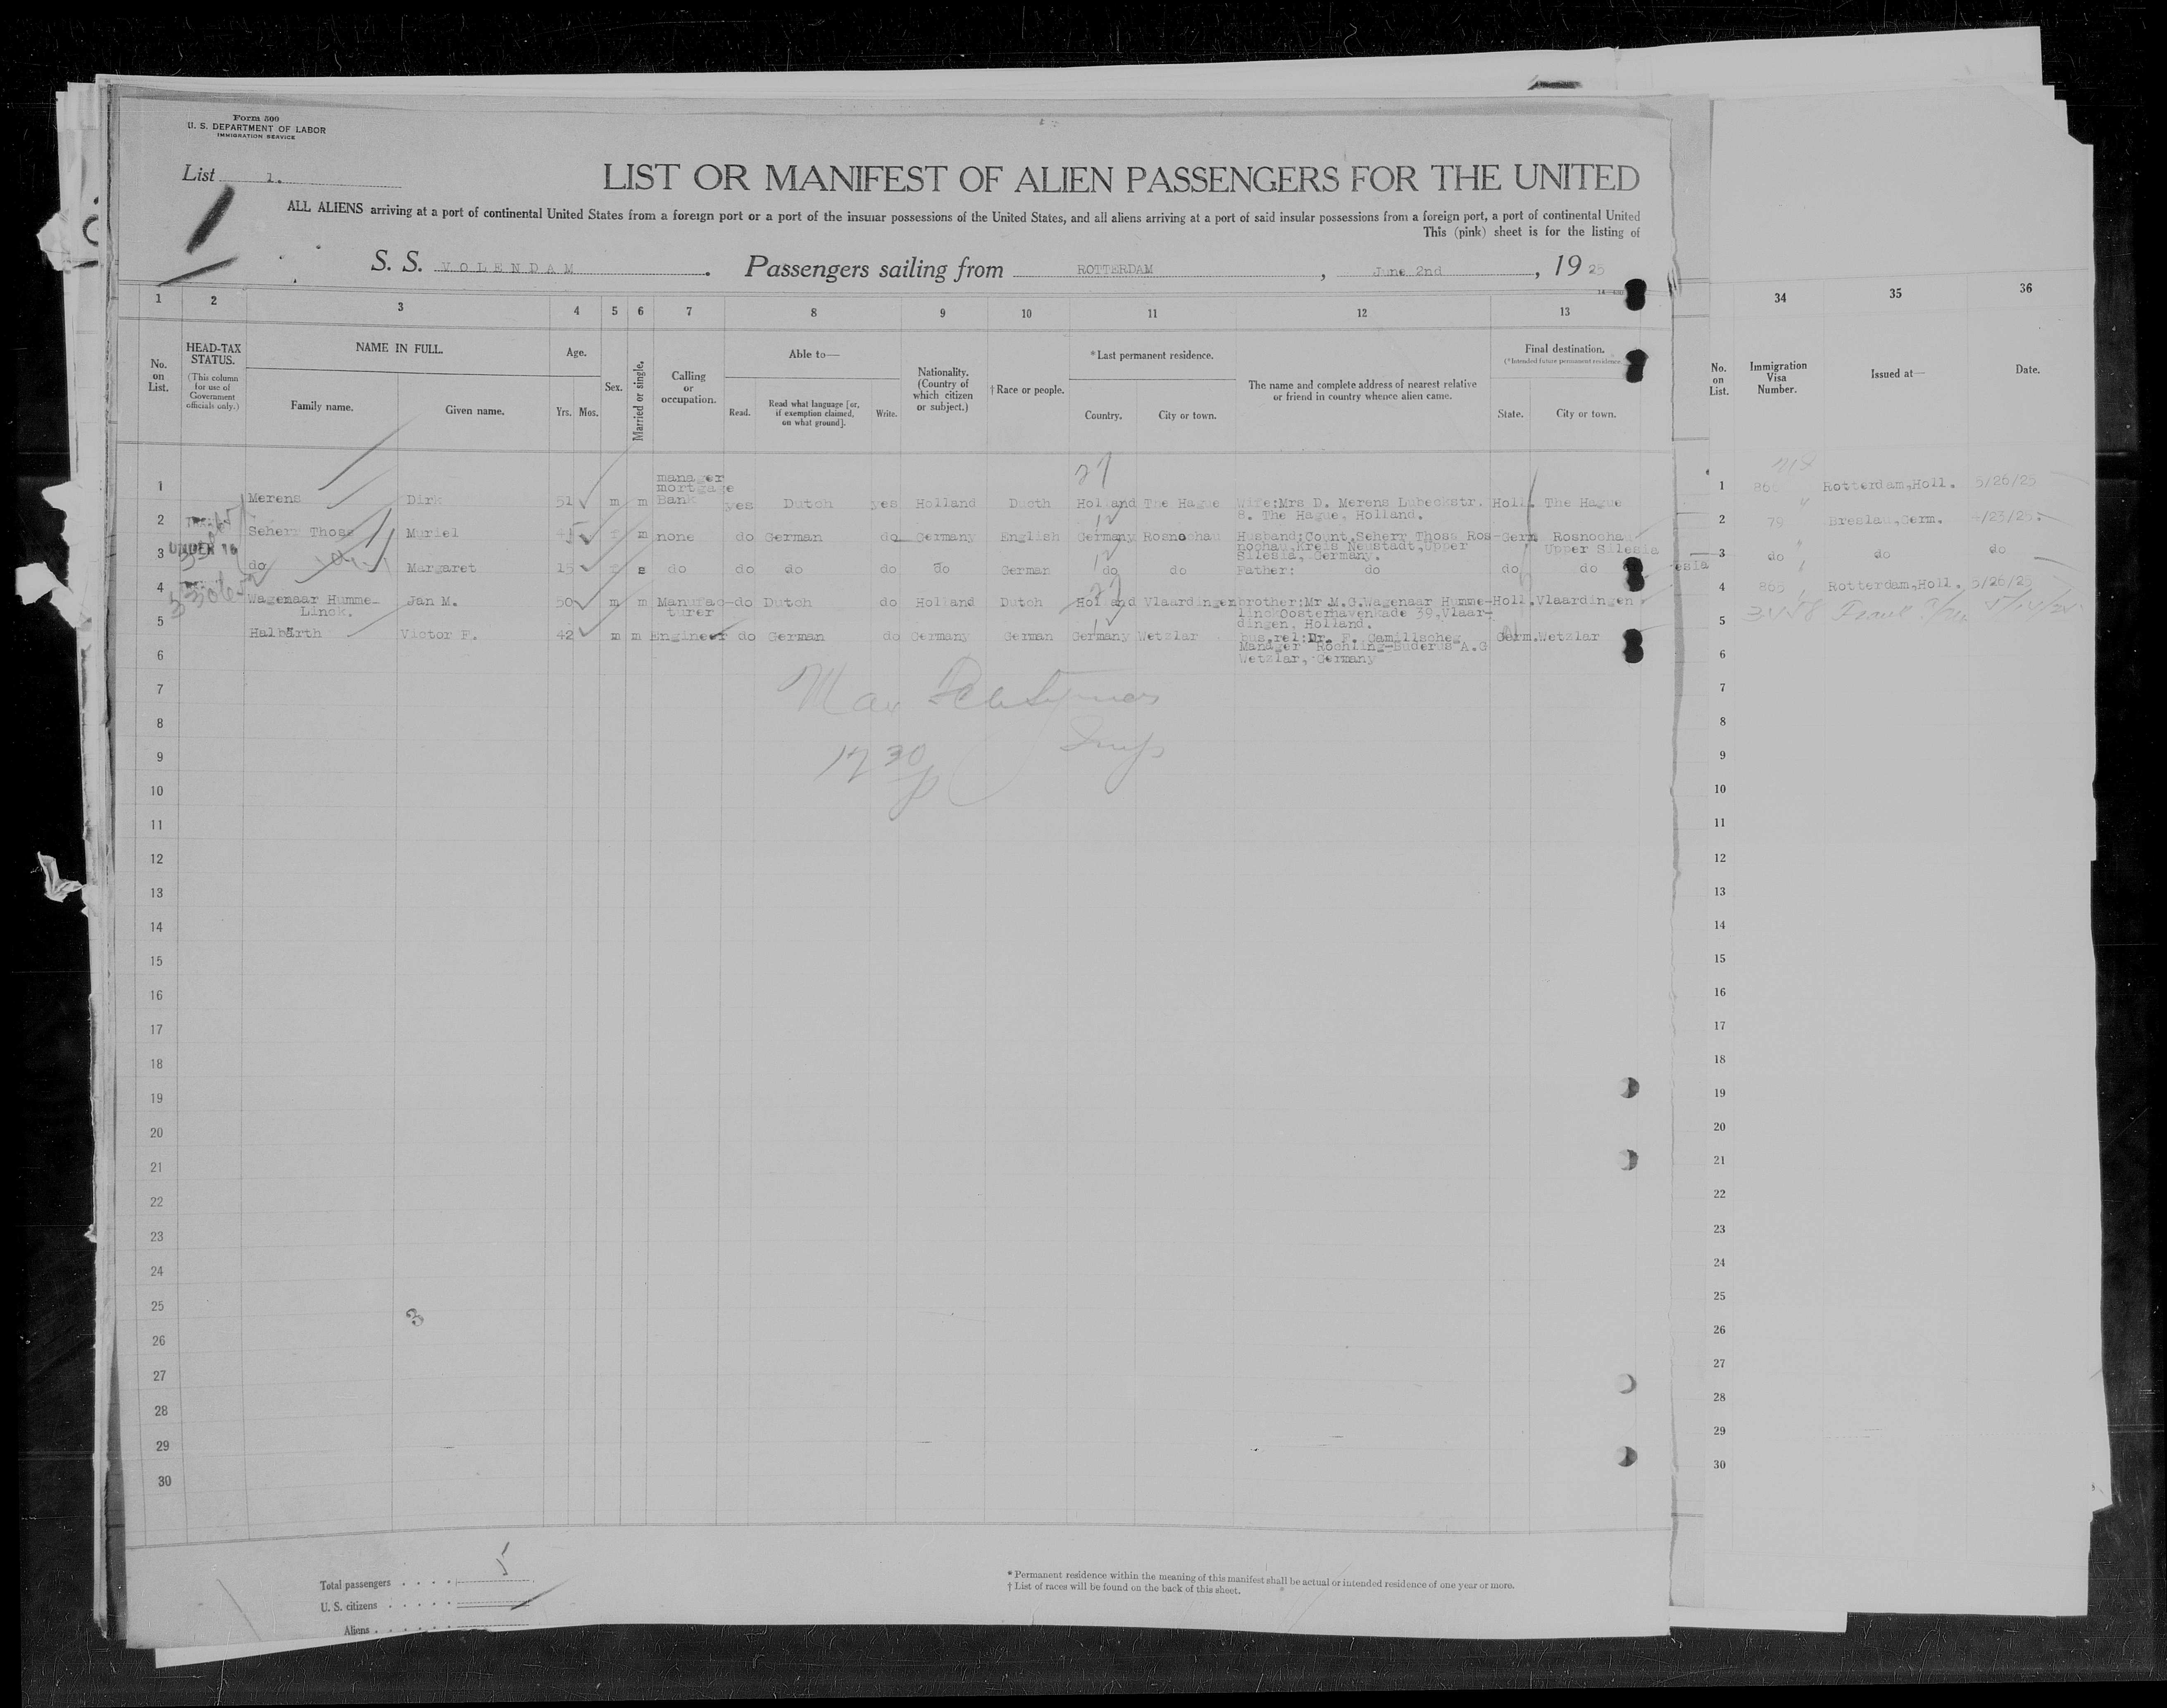 Form 500
U. S. DEPARTMENT OF LABOR
IMMIGRATION SERVICE
List 1.
LIST OR MANIFEST OF ALIEN PASSENGERS FOR THE UNITED
ALL ALIENS arriving at a port of continental United States from a foreign port or a port of the insular possessions of the United States, and all aliens arriving at a port of said insular possessions from a foreign port, a port of continental United
This (pink) sheet is for the listing of
S. S. VOLENDAM. Passengers sailing from ROTTERDAM, June 2nd, 1925
1 2 3 4 5 6 7 8 9 10 11 12 13 34 35 36
No. on List.
HEAD-TAX STATUS.
(This column for use of Government officials only.)
NAME IN FULL.
Family name. Given name.
Age.
Yrs. Mos.
Sex.
Married or single.
Calling or occupation.
Able to—
Read. Read what language [or, if exemption claimed, on what ground]. Write.
Nationality. (Country of which citizen or subject.)
† Race or people.
* Last permanent residence.
Country. City or town.
The name and complete address of nearest relative or friend in country whence alien came.
Final destination.
(*Intended future permanent residence.
State. City or town.
No. on List.
Immigration Visa Number.
Issued at—
Date.
1 Merens Dirk 51 m m manager mortgage Bank yes Dutch yes Holland Ducth Holland The Hague Wife:Mrs D. Merens Lubeckstr. 8. The Hague, Holland. Holl. The Hague 1 Rotterdam,Holl. 5/26/25
2 Seherr Thoss Muriel m none do German do Germany English Germany Rosnochau Husband:Count Seherr Thoss Ros-nochau,Kreis Neustadt,Upper Silesia, Germany. Germ Rosnochau Upper Silesia 2 79 Breslau,Germ. 4/23/25.
UNDER 16
3 do Margaret 15 s do do do do do German do do Father: do do do 3 do do do
4 Wagenaar Humme-Linck. Jan M. 50 m m Manufac-turer do Dutch do Holland Dutch Holland Vlaardingen brother:Mr M.G.Wagenaar Humme-linck Oosterhavenkade 39,Vlaar-dingen, Holland. Holl. Vlaardingen 4 865 Rotterdam,Holl. 5/26/25
5 Halbärth Victor F. 42 m m Engineer do German do Germany German Germany Wetzlar bus.rel:Dr. F. Camillscheg Manager Röchling-Buderus A.G Wetzlar, Germany Germ. Wetzlar 5
6 6
7 7
8 8
9 9
10 10
11 11
12 12
13 13
14 14
15 15
16 16
17 17
18 18
19 19
20 20
21 21
22 22
23 23
24 24
25 25
3
26 26
27 27
28 28
29 29
30 30
Total passengers . . . . 5
U. S. citizens . . . . .
Aliens . . . . . .
* Permanent residence within the meaning of this manifest shall be actual or intended residence of one year or more.
† List of races will be found on the back of this sheet.